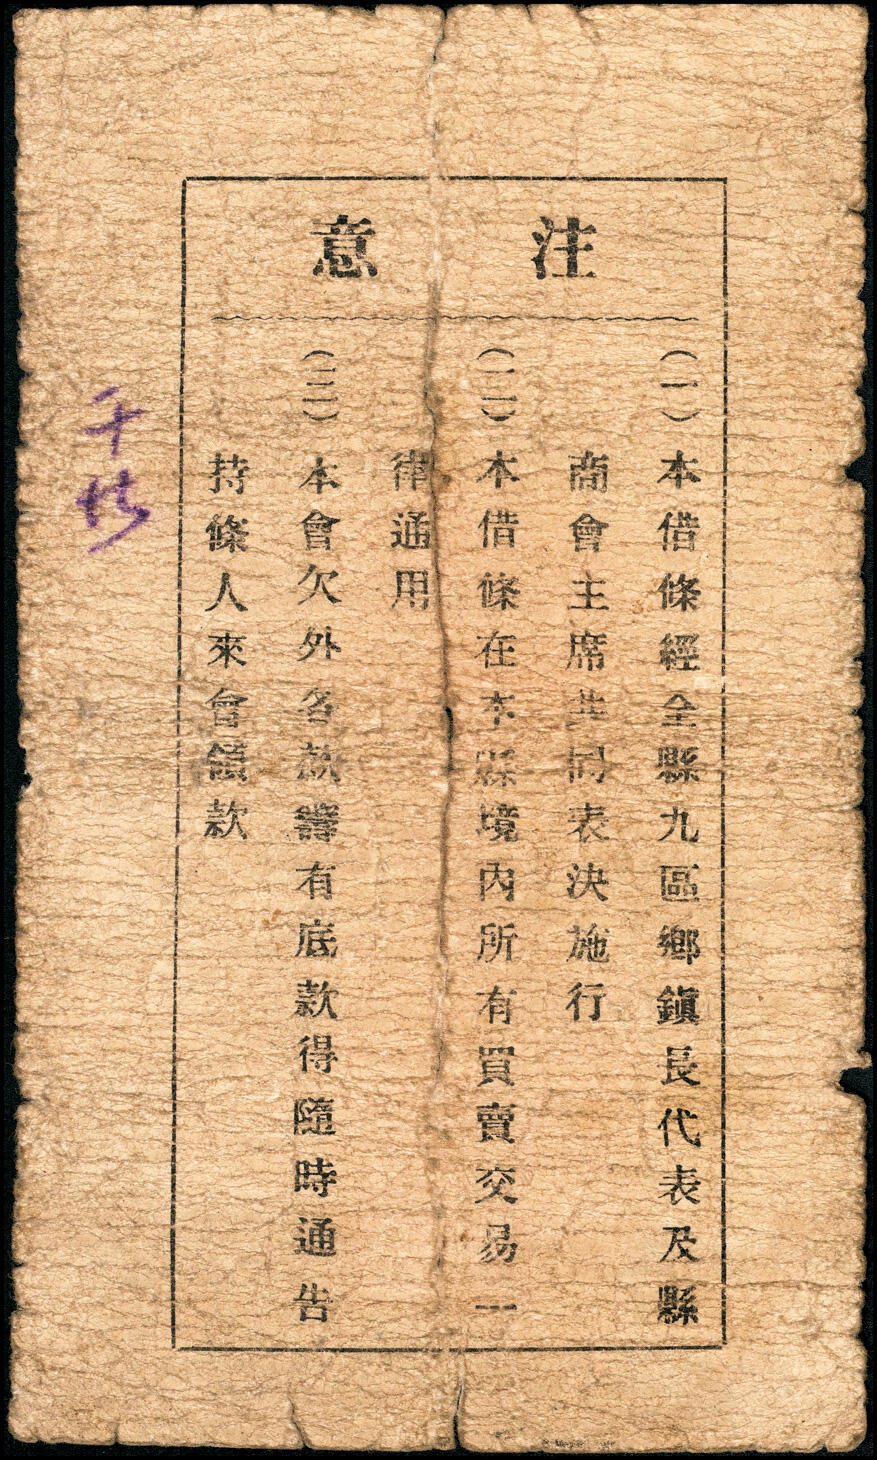 注意
(一)本借條經全縣九區鄉鎭長代表及縣
商會主席共同表決施行
(二)本借條在本縣境內所有買賣交易一
律通用
(三)本會欠外各款籌有底款得隨時通告
持條人來會領款